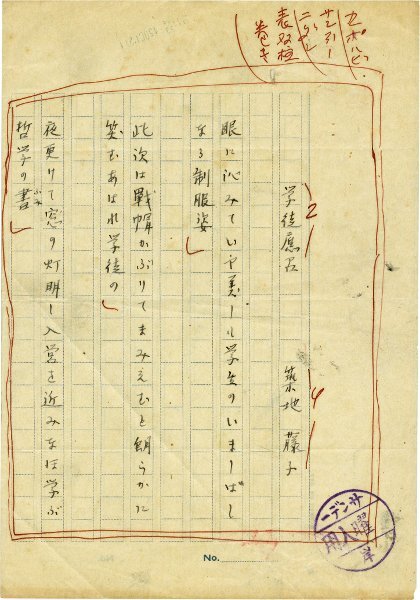 サンデー
表双柱
巻キ
2
4
学徒應召 築地 藤子
眼に沁みていや美し学生のいましばし
なる制服姿
此次は戦帽かぶりてまみえむと朗らかに
笑むあはれ学徒の
夜更けて窓の灯明し入営を近みなほ学ぶ
哲学の書
ふみ
サンデー
入用
岸
No.